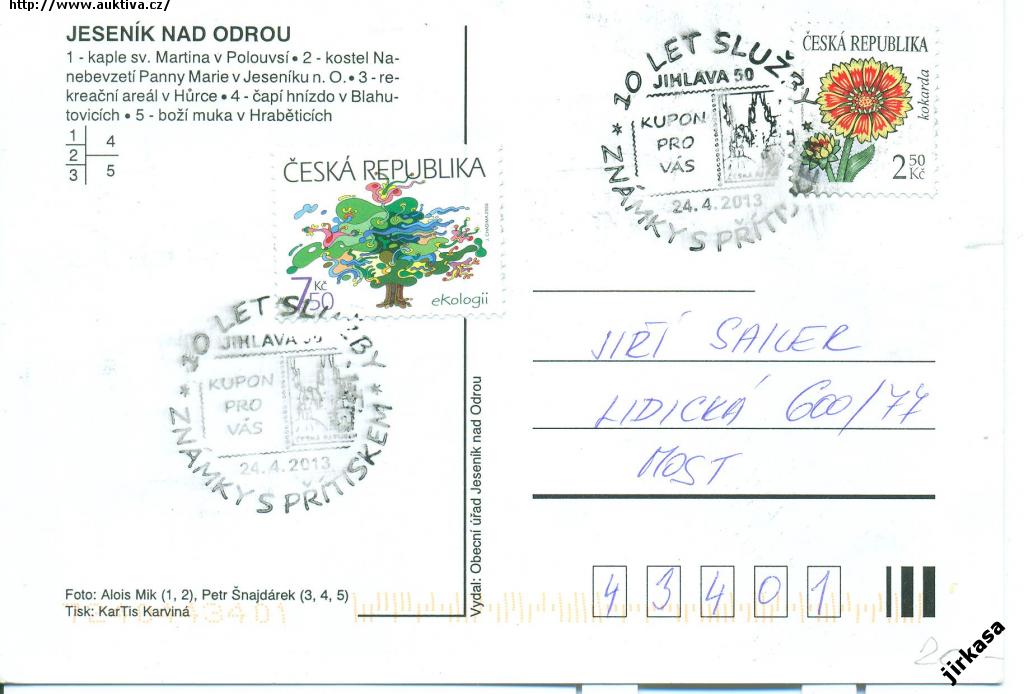 www.auktiva.cz/
JESENÍK NAD ODROU
1 - kaple sv. Martina v Polouvsí • 2 - kostel Na-
nebevzetí Panny Marie v Jeseníku n. O. • 3 - re-
kreační areál v Hůrce • 4 - čapí hnízdo v Blahu-
tovicích • 5 - boží muka v Hraběticích
1 4
2
3 5
ČESKÁ REPUBLIKA
7 Kč
50
ekologii
10 LET SLUŽBY
JIHLAVA 50
KUPON
PRO
VÁS
24.4.2013
ZNÁMKY S PŘÍTISKEM
Foto: Alois Mik (1, 2), Petr Šnajdárek (3, 4, 5)
Tisk: KarTis Karviná
Vydal: Obecní úřad Jeseník nad Odrou
10 LET SLUŽBY
JIHLAVA 50
KUPON
PRO
VÁS
24.4.2013
ZNÁMKY S PŘÍTISKEM
ČESKÁ REPUBLIKA
kokarda
2 50
Kč
JIŘÍ SAILER
LIDICKÁ 600/77
MOST
4 3 4 0 1
20,-
jirkasa